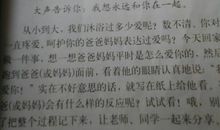 大声告诉你：我想永远和你在一起。
从小到大，我们沐浴过多少爱呢？数不清。你对
一直疼爱、呵护你的爸爸妈妈表达过爱吗？今天回家
做一件事，想一想爸爸妈妈平时是怎么爱你的，然后
跑到爸爸(或妈妈)面前，看着他的眼睛认真地说：“
爱你！”实在不好意思的话，就写在纸上给他看。
爸(或妈妈)会有什么样的反应呢？试试看！哦，别
了把整个过程记下来，让老师、同学一起来分享